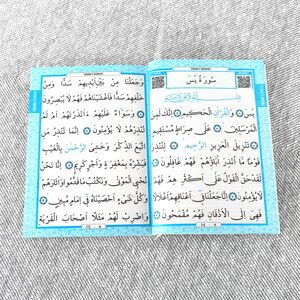 سُورَةُ يٰسٓ
يٰسٓ وَالْقُرْاٰنِ الْحَكِيمِ اِنَّكَ لَمِنَ
الْمُرْسَلِينَ عَلٰى صِرَاطٍ مُسْتَقِيمٍ
تَنْزِيلَ الْعَزِيزِ الرَّحِيمِ لِتُنْذِرَ
قَوْمًا مَٓا اُنْذِرَ اٰبَٓاؤُهُمْ فَهُمْ غَافِلُونَ
لَقَدْ حَقَّ الْقَوْلُ عَلٰٓى اَكْثَرِهِمْ فَهُمْ
لَا يُؤْمِنُونَ اِنَّا جَعَلْنَا فِٓى اَعْنَاقِهِمْ اَغْلَالًا
فَهِىَ اِلَى الْاَذْقَانِ فَهُمْ مُقْمَحُونَ
وَجَعَلْنَا مِنْ بَيْنِ اَيْدِيهِمْ سَدًّا وَمِنْ
خَلْفِهِمْ سَدًّا فَاَغْشَيْنَاهُمْ فَهُمْ لَا يُبْصِرُونَ
وَسَوَٓاءٌ عَلَيْهِمْ ءَاَنْذَرْتَهُمْ اَمْ لَمْ
تُنْذِرْهُمْ لَا يُؤْمِنُونَ اِنَّمَا تُنْذِرُ مَنِ
اتَّبَعَ الذِّكْرَ وَخَشِىَ الرَّحْمٰنَ بِالْغَيْبِ
فَبَشِّرْهُ بِمَغْفِرَةٍ وَاَجْرٍ كَرِيمٍ اِنَّا نَحْنُ
نُحْيِى الْمَوْتٰى وَنَكْتُبُ مَا قَدَّمُوا وَاٰثَارَهُمْ
وَكُلَّ شَىْءٍ اَحْصَيْنَاهُ فِٓى اِمَامٍ مُبِينٍ
وَاضْرِبْ لَهُمْ مَثَلًا اَصْحَابَ الْقَرْيَةِ